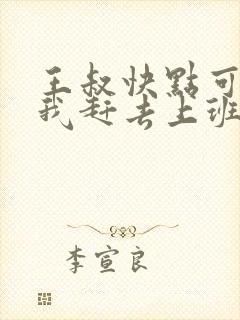 王叔快點可
我赶去上班
李宣良